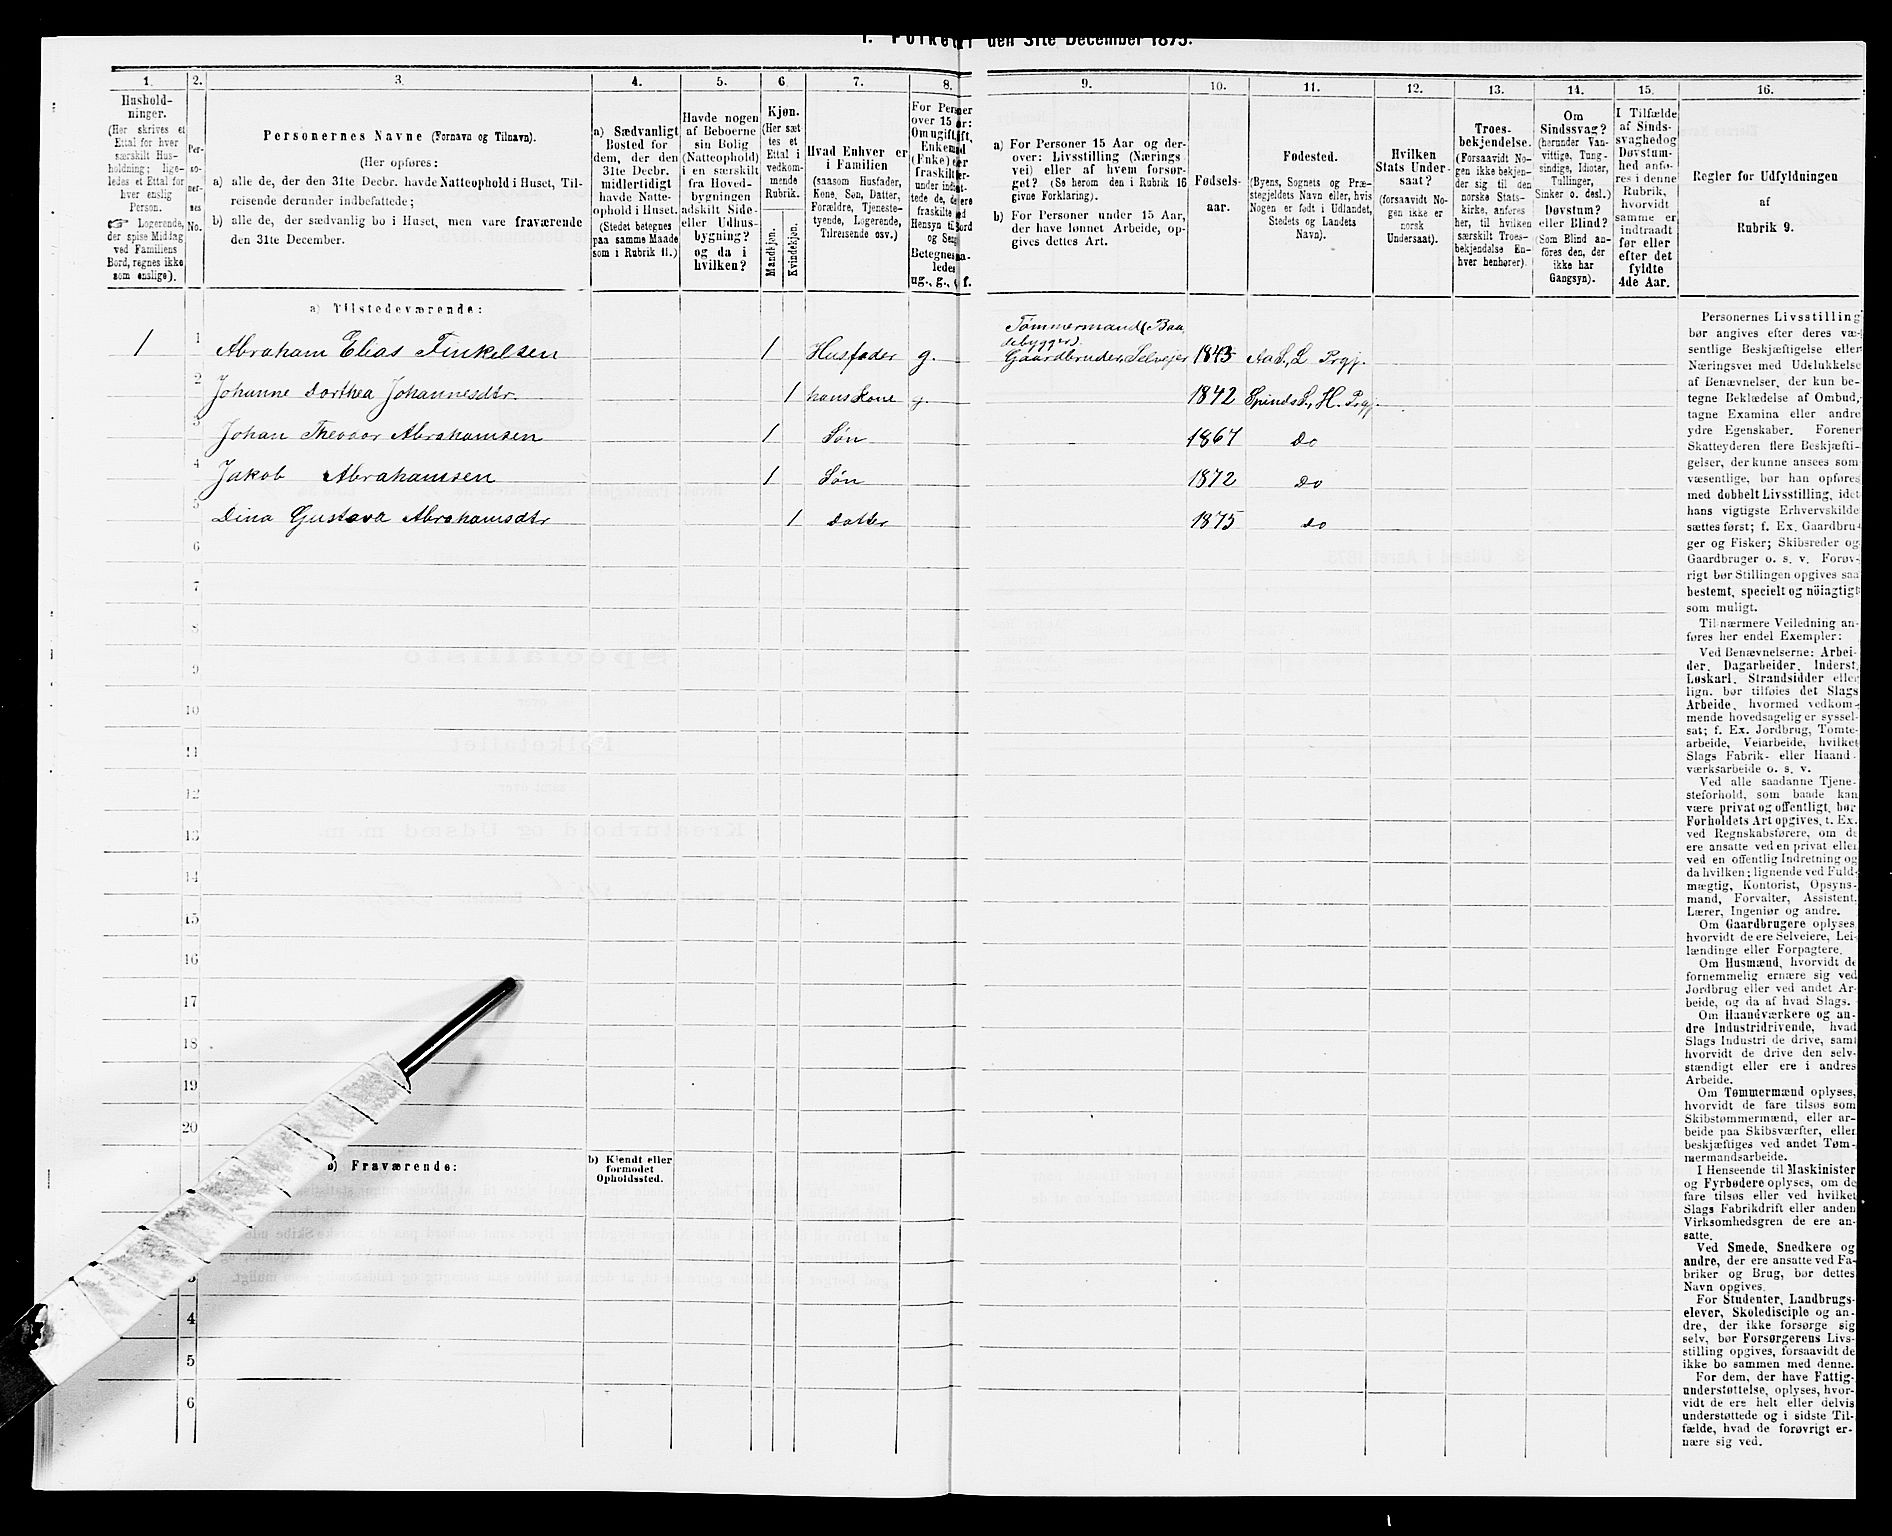 1. Folketal den 31te December 1875.
1. 2. 3. 4. 5. 6. 7. 8. 9. 10. 11. 12. 13. 14. 15. 16.
Hushold-
ninger.
(Her skrives et
Ettal for hver
særskilt Hus-
holdning; lige-
ledes et Ettal for
hver enslig
Person.
☞ Logerende,
der spise Middag
ved Familiens
Bord, regnes ikke
som enslige).
Per-
so-
ner-
nes
No.
Personernes Navne (Fornavn og Tilnavn).
(Her opføres:
a) alle de, der den 31te Decbr. havde Natteophold i Huset, Til-
reisende derunder indbefattede;
b) alle de, der sædvanlig bo i Huset, men vare fraværende
den 31te December.
a) Sædvanligt
Bosted for
dem, der den
31te Decbr.
midlertidigt
havde Natte-
ophold i Huset.
(Stedet betegnes
paa samme Maade
som i Rubrik 11.)
Havde nogen
af Beboerne
sin Bolig
(Natteophold)
i en særskilt
fra Hoved-
bygningen
adskilt Side-
eller Udhus-
bygning?
og da i
hvilken?
Kjøn.
(Her sæt
tes et
Ettal i
vedkom-
mende
Rubrik.
Mandkjøn.
Kvindekjøn.
Hvad Enhver er
i Familien
(saasom Husfader,
Kone, Søn, Datter,
Forældre, Tjeneste-
tyende, Logerende,
Tilreisende osv.)
For Personer
over 15 Aar:
Om ugift, gift,
Enkemand
(Enke) eller
fraskilt
Betegnes saa-
ledes
ug., g., e., f.
a) For Personer 15 Aar og der-
over: Livsstilling (Nærings
vei) eller af hvem forsør-
get? (Se herom den i Rubrik 16
givne Forklaring).
b) For Personer under 15 Aar,
der have lønnet Arbeide, op-
gives dettes Art.
Fødsels-
aar.
Fødested.
(Byens, Sognets og Præ-
stegjeldets Navn eller, hvis
Nogen er født i Udlandet,
Stedets og Landets
Navn).
Hvilken
Stats Under-
saat?
(forsaavidt No-
gen ikke er
norsk
Undersaat).
Troes-
bekjendelse.
(Forsaavidt No-
gen ikke bekjen-
der sig til den
norske Stats-
kirke, anføres
her, til hvilken
særskilt Troes-
bekjendelse En-
hver henhører).
Om
Sindssvag?
(herunder Van-
vittige, Tung-
sindige, Idioter,
Tullinger,
Sinker o. desl.)
Døvstum?
eller Blind?
(Som Blind an-
føres den, der
ikke har
Gangsyn).
I Tilfælde
af Sinds-
svaghed og
Døvstum-
hed anfø-
res i denne
Rubrik,
hvorvidt
samme er
indtraadt
før eller
efter det
fyldte
4de Aar.
Regler for Udfyldningen
af
Rubrik 9.
a) Tilstedeværende:
1 1 Abraham Elias Finkelsen 1 Husfader g. Tømmermand (Baa
debygger).
Gaardbruder, Selvejer 1843 Aa S., L Prgj.
2 Johanne Dorthea Johannesdtr. 1 hans Kone g. 1842 Spinds S., H. Prgj.
3 Johan Theodor Abrahamsen 1 Søn 1867 Do
4 Jakob Abrahamsen 1 Søn 1872 Do
5 Dina Gustava Abrahamsdtr 1 Datter 1875 Do
6
7
8
9
10
11
12
13
14
15
16
17
18
19
20
b) Fraværende:
b) Kjendt eller
formodet
Opholdssted.
3
4
5
6
Personernes Livsstilling
bør angives efter deres væ-
sentlige Beskjæftigelse eller
Næringsvei med Udelukkelse
af Benævnelser, der kun be-
tegne Beklædelse af Ombud,
tagne Examina eller andre
ydre Egenskaber. Forener
Skatteyderen flere Beskjæfti-
gelser, der kunne ansees som
væsentlige, bør han opføres
med dobbelt Livsstilling, idet
hans vigtigste Erhvervskilde
sættes først; f. Ex. Gaardbru-
ger og Fisker; Skibsreder og
Gaardbruger o. s. v. Forøv-
rigt bør Stillingen opgives saa
bestemt, specielt og nöiagtigt
som muligt.
Til nærmere Veiledning an-
føres her endel Exempler:
Ved Benævnelserne: Arbei-
der, Dagarbeider, Inderst,
Løskarl, Strandsidder eller
lign. bør tilføies det Slags
Arbeide, hvormed vedkom-
mende hovedsagelig er syssel-
sat; f. Ex. Jordbrug, Tomte-
arbeide, Veiarbeide, hvilket
Slags Fabrik- eller Haand-
værksarbeide o. s. v.
Ved alle saadanne Tjene-
steforhold, som baade kan
være privat og offentligt, bør
Forholdets Art opgives, t. Ex.
ved Regnskabsførere, om de
ere ansatte ved en privat eller
ved en offentlig Indretning og
da hvilken; lignende ved Fuld-
mægtig, Kontorist, Opsyns-
mand, Forvalter, Assistent,
Lærer, Ingeniør og andre.
Om Gaardbrugere oplyses,
hvorvidt de ere Selveiere, Lei-
lændinge eller Forpagtere.
Om Husmænd, hvorvidt de
fornemmelig ernære sig ved
Jordbrug eller ved andet Ar-
beide, og da af hvad Slags.
Om Haandværkere og an-
dre Industridrivende, hvad
Slags Industri de drive, samt
hvorvidt de drive den selv-
stændigt eller ere i andres
Arbeide.
Om Tømmermænd oplyses,
hvorvidt de fare tilsøs som
Skibstømmermænd, eller ar-
beide paa Skibsværfter, eller
beskjæftiges ved andet Tøm-
mermandsarbeide.
I Henseende til Maskinister
og Fyrbødere oplyses, om de
fare tilsøs eller ved hvilket
Slags Fabrikdrift eller anden
Virksomhedsgren de ere an-
satte.
Ved Smede, Snedkere og
andre, der ere ansatte ved Fa-
briker og Brug, bør dettes
Navn opgives.
For Studenter, Landbrugs-
elever, Skoledisciple og an-
dre, der ikke forsørge sig
selv, bør Forsørgerens Livs-
stilling opgives, forsaavidt de
ikke bo sammen med denne.
For dem, der have Fattig-
understøttelse, oplyses, hvor-
vidt de ere helt eller delvis
understøttede og i sidste Til-
fælde, hvad de forøvrigt er-
nære sig ved.